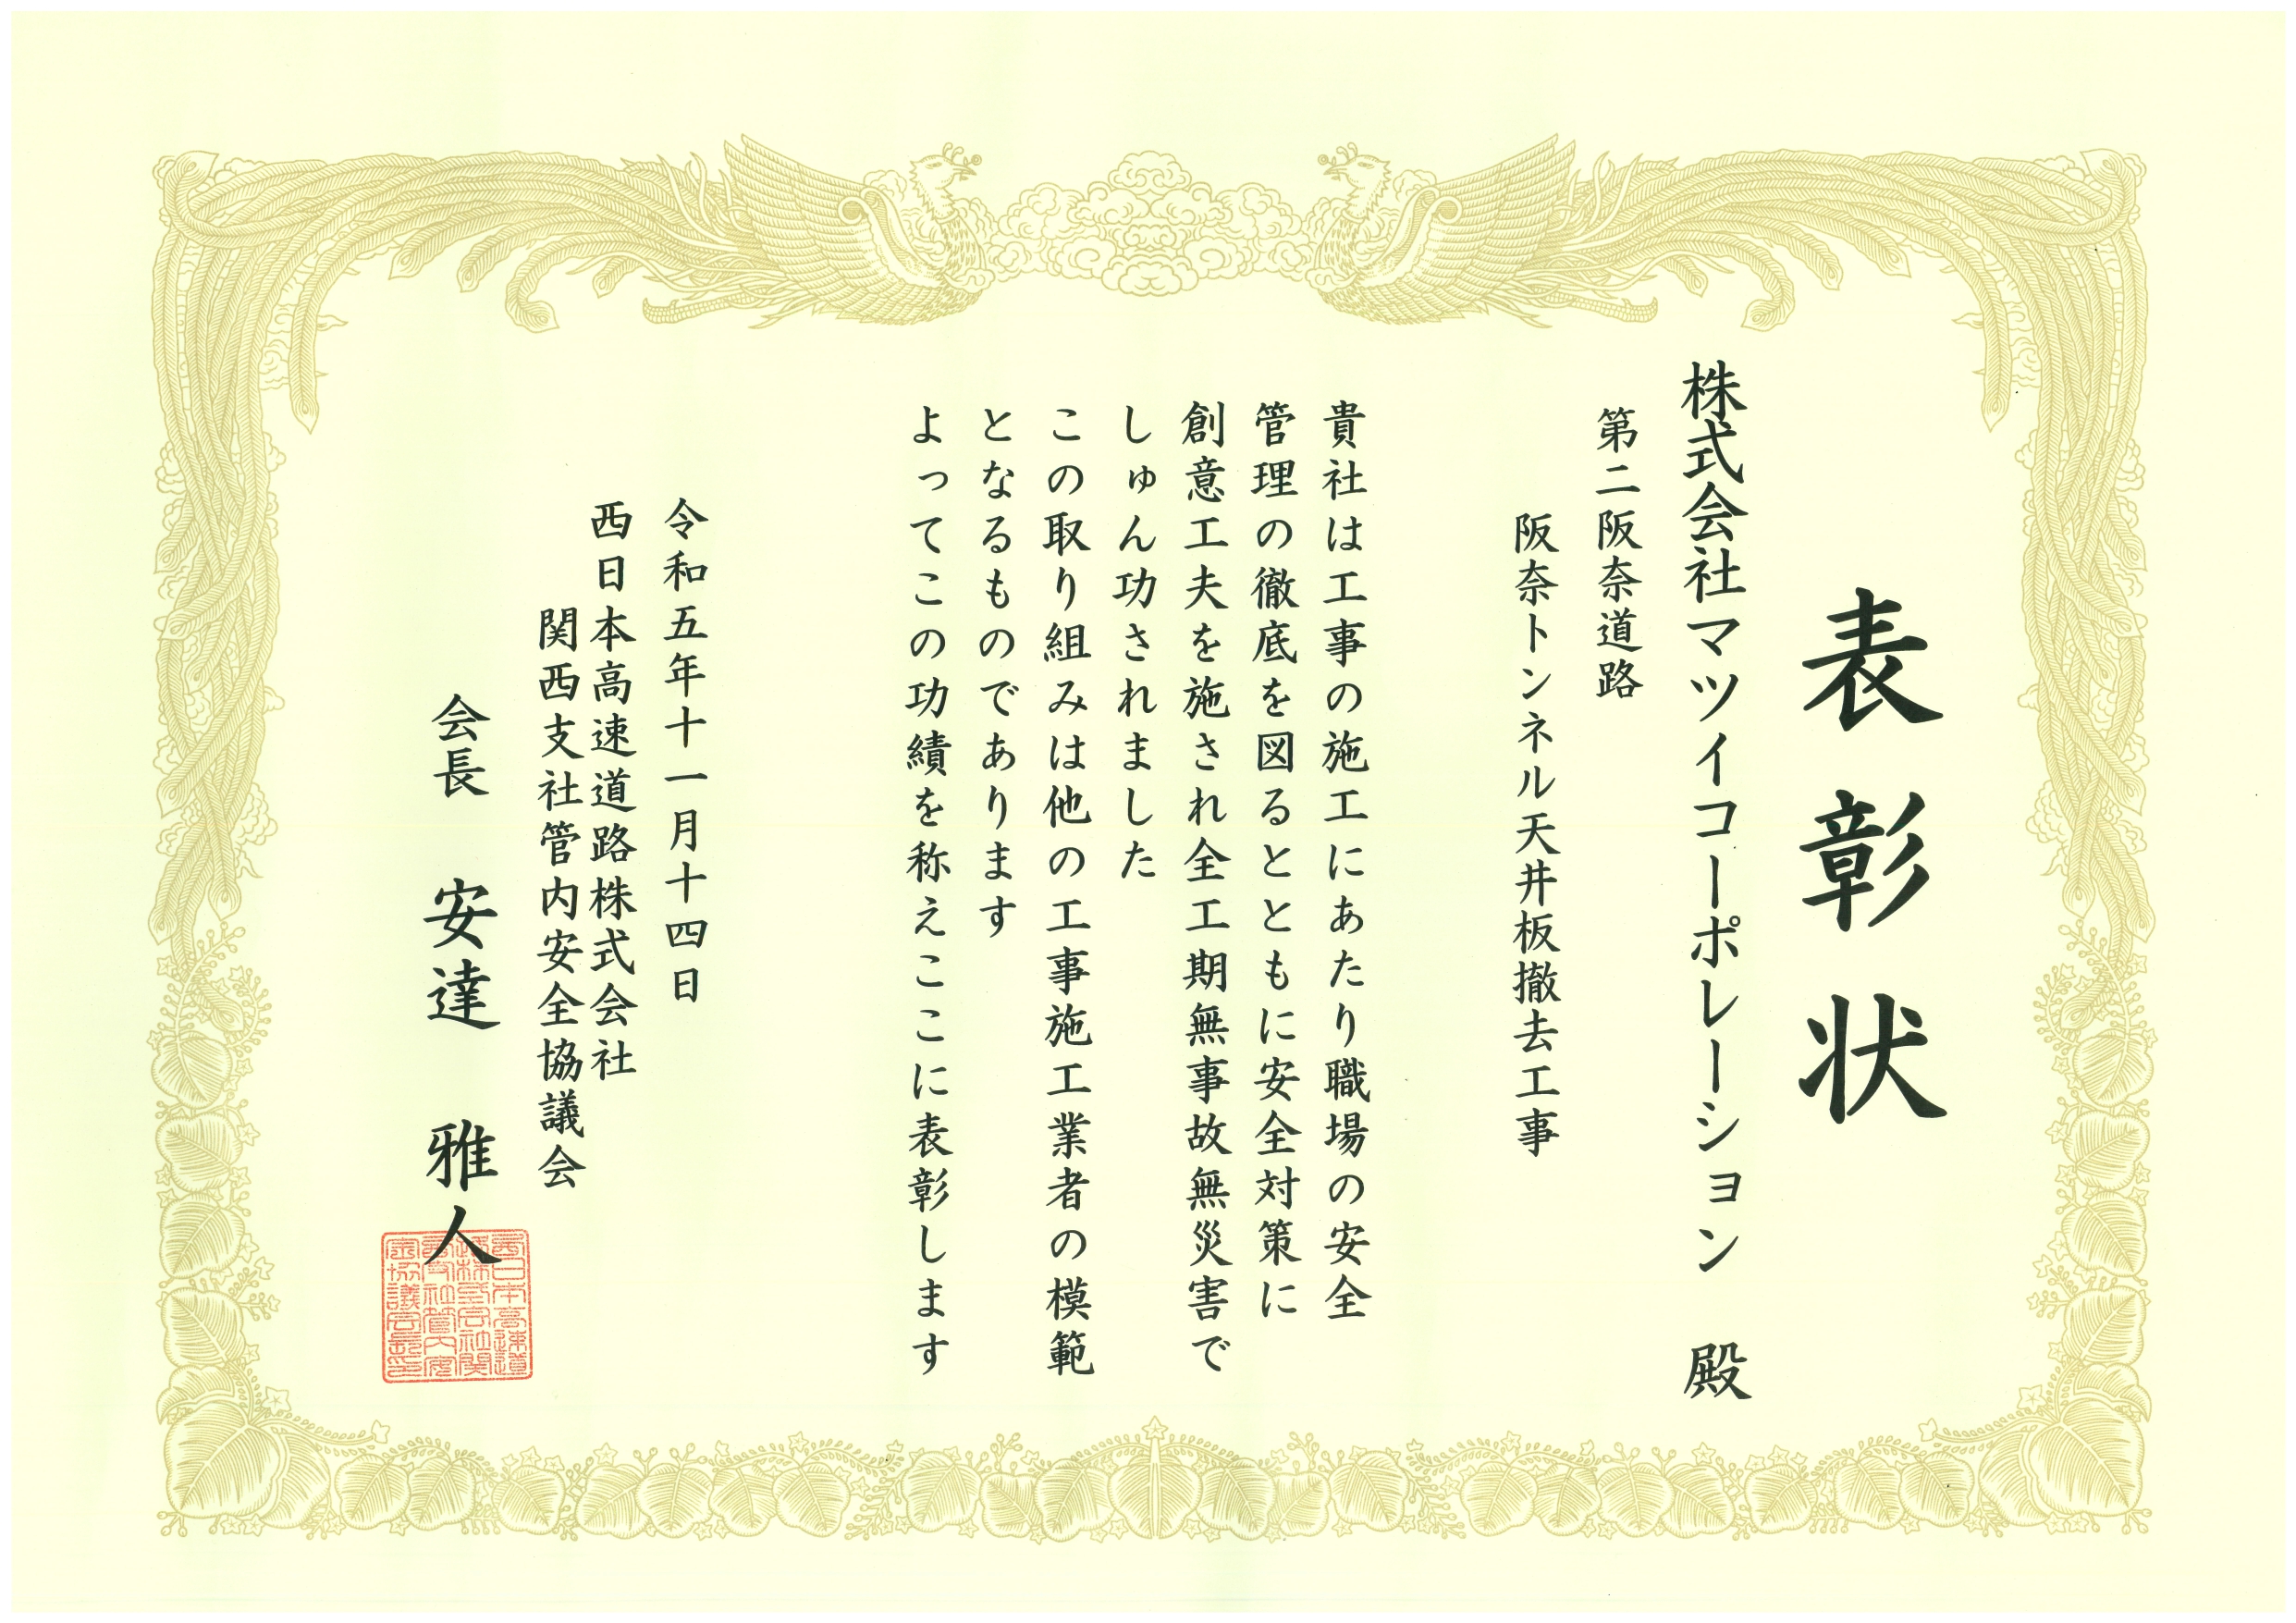 表彰状
株式会社マツイコーポレーション 殿
第二阪奈道路
阪奈トンネル天井板撤去工事
貴社は工事の施工にあたり職場の安全
管理の徹底を図るとともに安全対策に
創意工夫を施され全工期無事故無災害で
しゅん功されました
この取り組みは他の工事施工業者の模範
となるものであります
よってこの功績を称えここに表彰します
令和五年十一月十四日
西日本高速道路株式会社
関西支社管内安全協議会
会長 安達 雅人
西日本高速道
路株式会社関
西支社管内安
全協議会長印